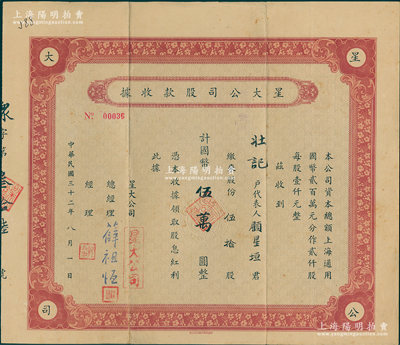 上海陽明拍賣
星大公司
星大公司股款收據
No 00036
本公司資本總額上海通用
國幣貳百萬元分作貳仟股
每股壹仟元整
茲收到
壯記 戶代表人顧星垣君
繳來股份 伍拾 股
計國幣 伍萬 圓整
憑本收據領取股息紅利
此據
星大公司
總經理 薛祖恆
經理
中華民國三十二年 八月 一日
字第 叁拾陸 號
上海陽明拍賣